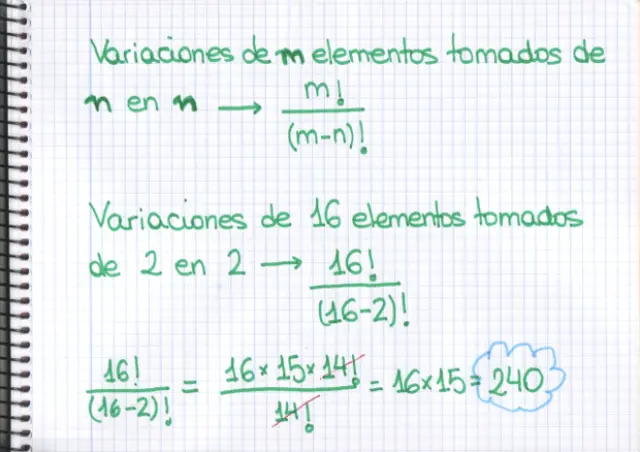 Variaciones de m elementos tomados de
n en n → m!
(m-n)!
Variaciones de 16 elementos tomados
de 2 en 2 → 16!
(16-2)!
16! / (16-2)! = 16 × 15 × 14! / 14! = 16×15 = 240